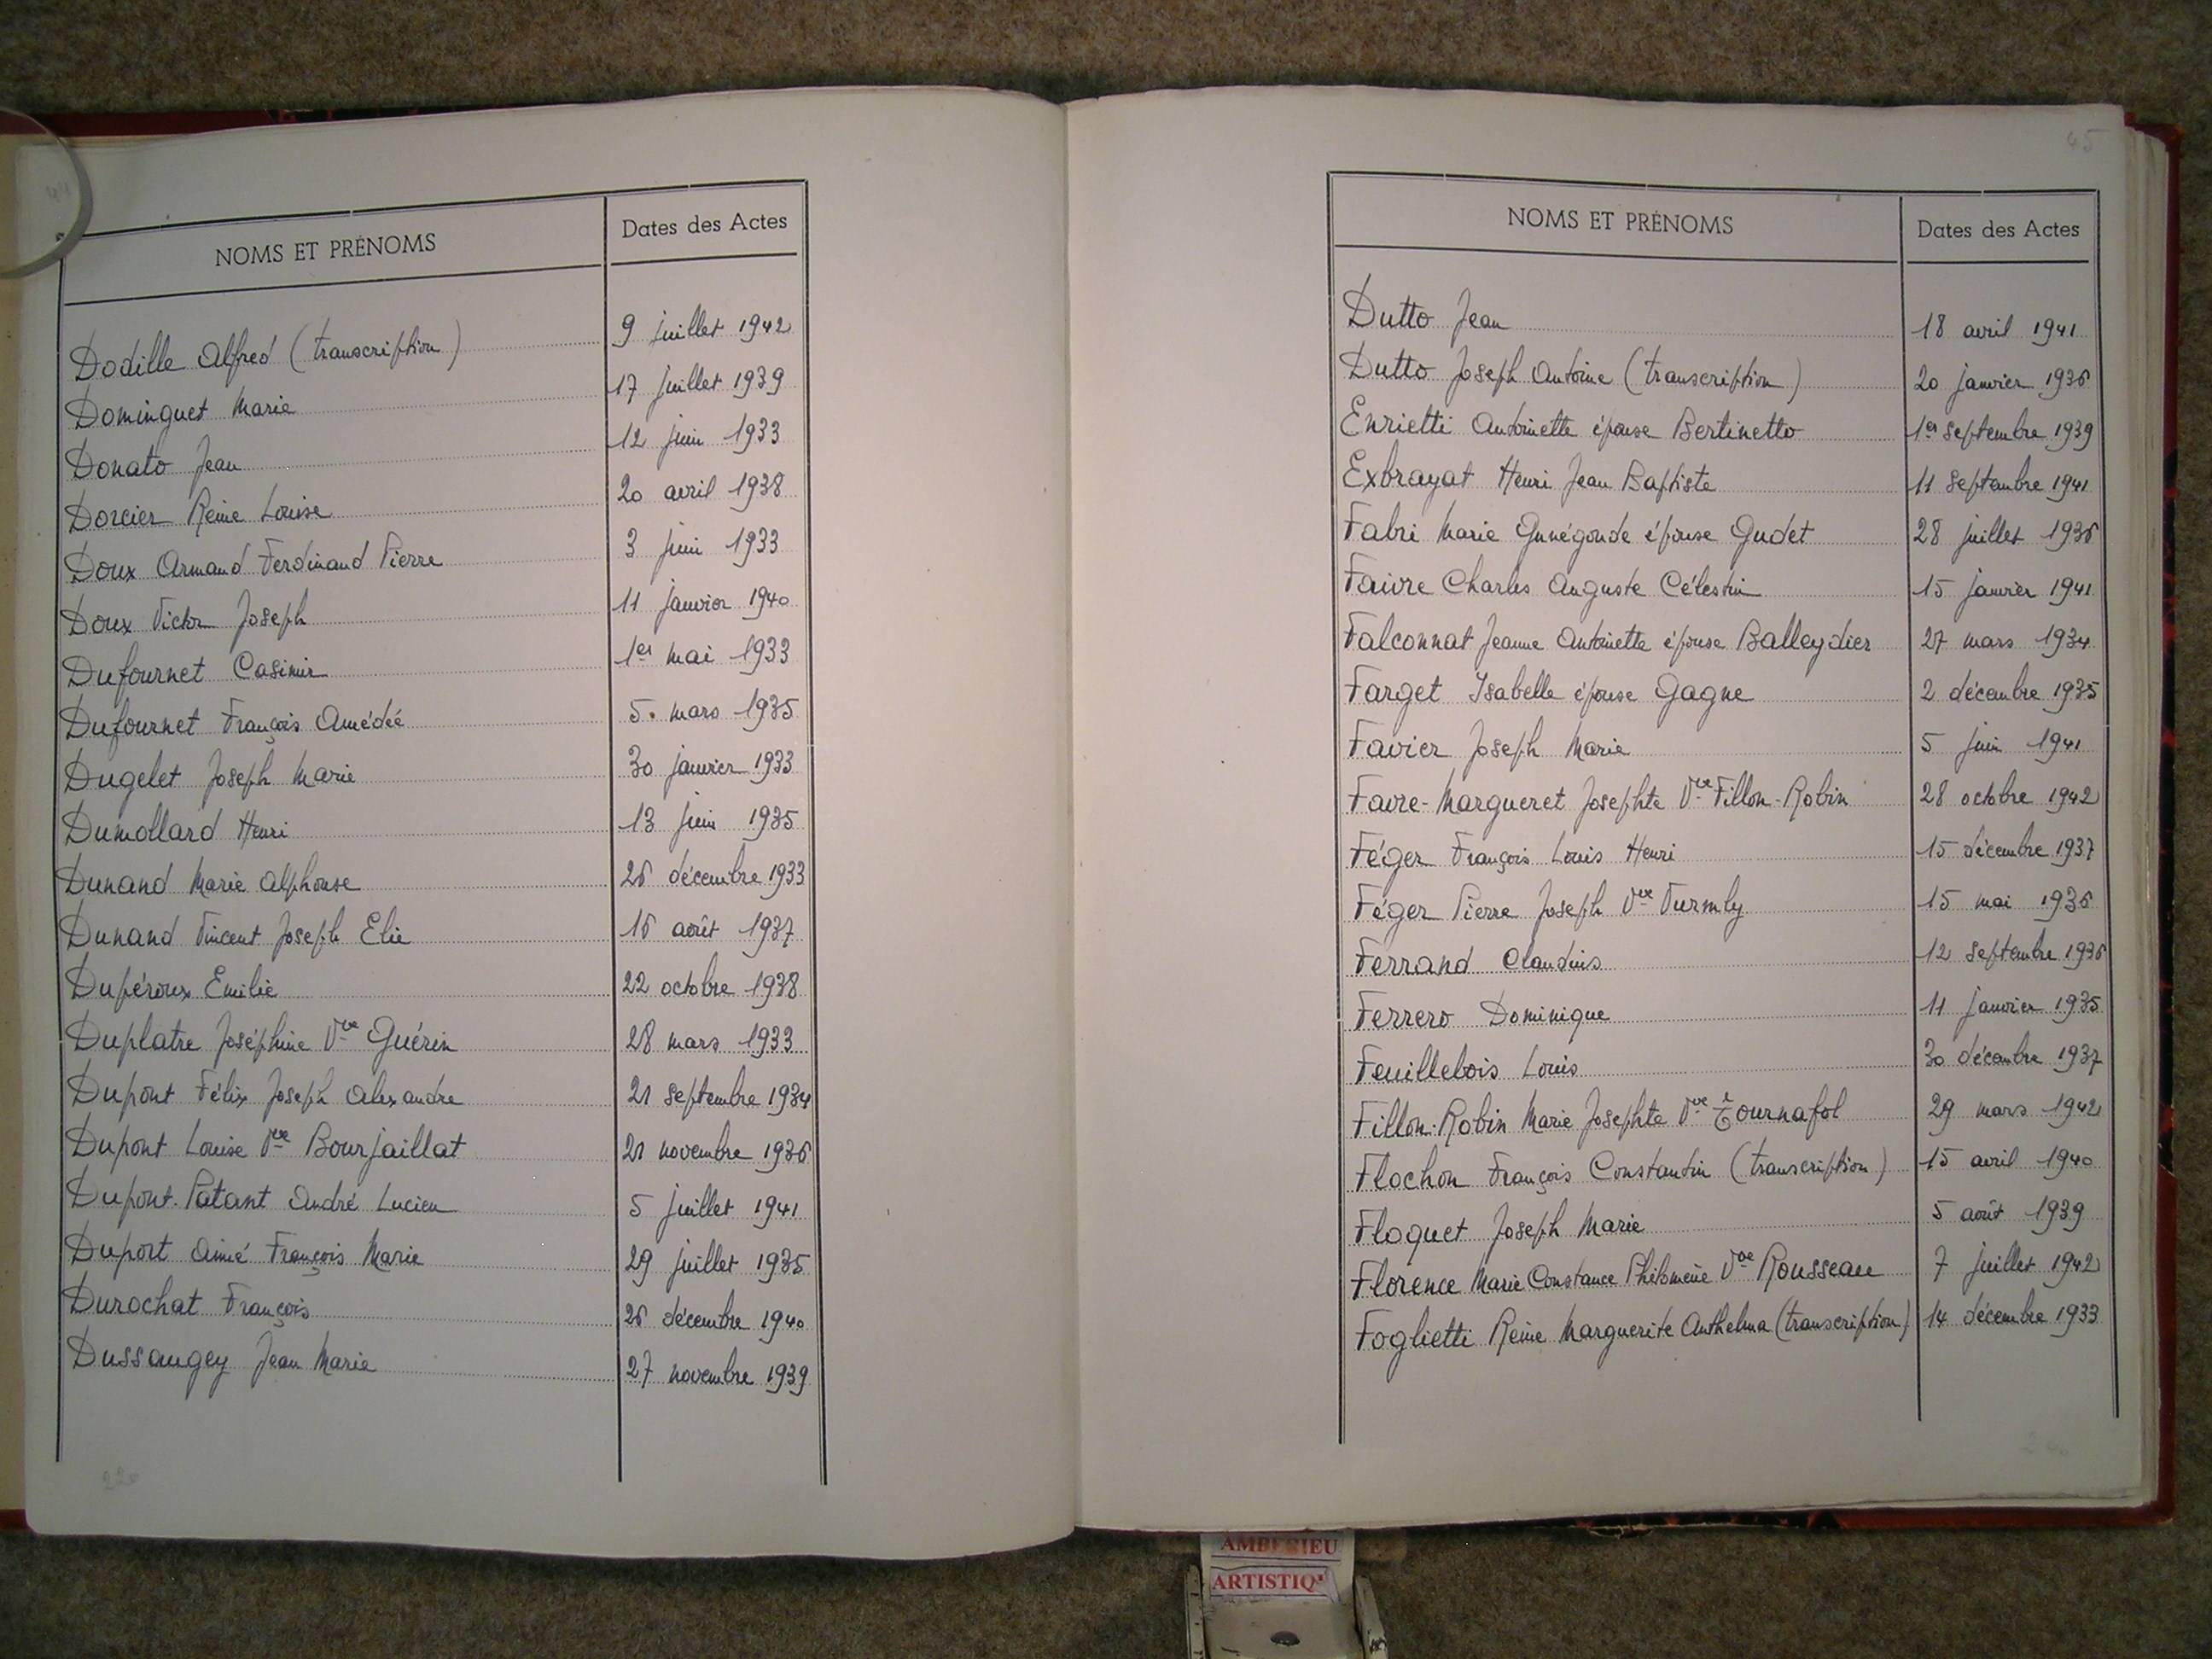 NOMS ET PRÉNOMS Dates des Actes
Dodille Alfred (transcription) 9 juillet 1942
Dominguet Marie 17 juillet 1939
Donato Jean 12 juin 1933
Dorcier Reine Louise 20 avril 1938
Doux Armand Ferdinand Pierre 3 juin 1933
Doux Victor Joseph 11 janvier 1940
Dufournet Casimir 1er mai 1933
Dufournet François Amédée 5 mars 1935
Dugelet Joseph Marie 30 janvier 1933
Dumollard Henri 13 juin 1935
Dunand Marie Alphonse 26 décembre 1933
Dunand Vincent Joseph Elie 16 août 1937
Dupéroux Emilie 22 octobre 1938
Duplatre Joséphine Vve Guérin 28 mars 1933
Dupont Félix Joseph Alexandre 21 septembre 1934
Dupont Louise Vve Bourjaillat 21 novembre 1936
Dupont-Patant André Lucien 5 juillet 1941
Duport Aimé François Marie 29 juillet 1935
Durochat François 26 décembre 1940
Dussaugey Jean Marie 27 novembre 1939
45
NOMS ET PRÉNOMS Dates des Actes
Dutto Jean 18 avril 1941
Dutto Joseph Antoine (transcription) 20 janvier 1936
Enrietti Antoinette épouse Bertinetto 1er septembre 1939
Exbrayat Henri Jean Baptiste 11 septembre 1941
Fabri Marie Gunégonde épouse Gudet 28 juillet 1936
Faivre Charles Auguste Célestin 15 janvier 1941
Falconnat Jeanne Antoinette épouse Balleydier 27 mars 1934
Farget Isabelle épouse Gagne 2 décembre 1935
Favier Joseph Marie 5 juin 1941
Favre-Margueret Josephte Vve Fillon-Robin 28 octobre 1942
Féger François Louis Henri 15 décembre 1937
Féger Pierre Joseph Vve Vurmly 15 mai 1936
Ferrand Claudius 12 septembre 1936
Ferrero Dominique 11 janvier 1935
Feuillebois Louis 30 décembre 1937
Fillon-Robin Marie Josephte Vve Tournafol 29 mars 1942
Flochon François Constantin (transcription) 15 avril 1940
Floquet Joseph Marie 5 août 1939
Florence Marie Constance Philomène Vve Rousseau 7 juillet 1942
Foglietti Reine Marguerite Anthelma (transcription) 14 décembre 1933
AMBERIEU